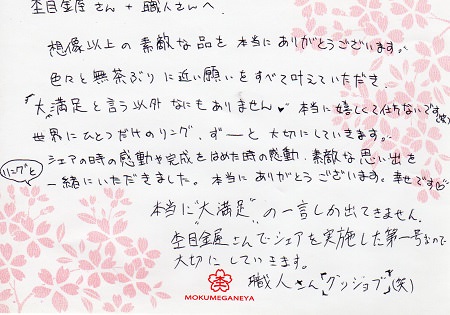 杢目金屋さん + 職人さんへ
想像以上の素敵な品を本当にありがとうございます。
色々と無茶ぶりに近い願いをすべて叶えていただき、
"大"満足と言う以外なにもありません♥ 本当に嬉しくて仕方ないです(笑)
世界にひとつだけのリング、ずーっと大切にしていきます。
シェアの時の感動や完成をはめた時の感動、素敵な思い出を
リングと
一緒にいただきました。本当にありがとうございます。幸せです
本当に"大満足"の一言しか出てきません。
杢目金屋さんでシェアを実施した第一号なので
大切にしていきます。
職人さん「グッジョブ」(笑)
杢
MOKUMEGANEYA